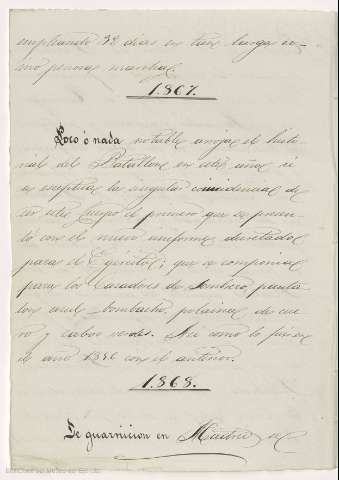 empleando 32 dias en tan larga co-
mo penosa marcha.
1.867.
Poco ó nada notable arroja el histo-
rial del Batallon en este año si
se esceptua la singular coincidencia de
ser este Cuerpo el primero que se presen-
tó con el nuevo uniforme decretado
para el Egército; que se componia
para los Cazadores de Sombrero, panta-
lon azul bombacho, polainas de cue-
ro y cabos verdes. Asi como lo fué en
el año 1856 con el anterior.
1.868.
De guarnicion en Madrid